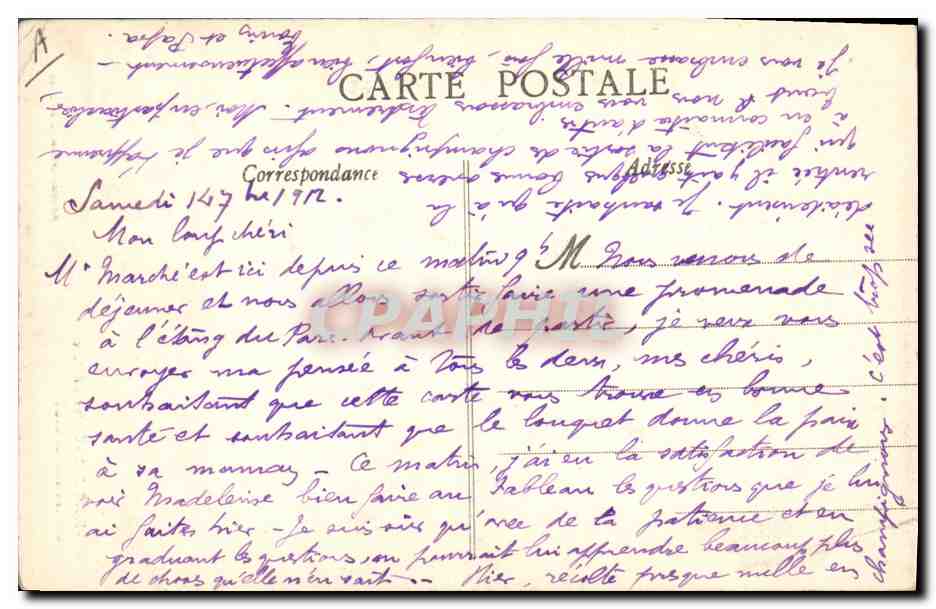 A
CARTE POSTALE
Correspondance
Adresse
Samedi 14 7bre 1912.
Mon loup chéri
Mr Marché est ici depuis ce matin 9 h Nous venons de
déjeuner et nous allons sortir faire une promenade
à l'étang du Parc. Avant de partir, je veux vous
envoyer ma pensée à tous les deux, mes chéris,
souhaitant que cette carte vous trouve en bonne
santé et souhaitant que le louquet donne la paix
à sa maman – Ce matin, j'ai eu la satisfaction de
voir Madeleine bien faire au tableau les questions que je lui
ai faites hier – Je suis sûr qu'avec de la patience et en
graduant les questions, on pourrait lui apprendre beaucoup plus
de choses qu'elle n'en sait. – Hier, récolte presque nulle en
champignons. C'est trop sec
décidement. Je souhaite qu'à la
rentrée il y ait quelques bonnes averses
qui facilitent la sortie de champignons afin que je t'apprenne
à en connaître d'autres
nous vous embrassons tendrement. Moi, en particulier,
je vous embrasse mille fois, bien fort, bien affectueusement –
et Papa.
CPAPHIL